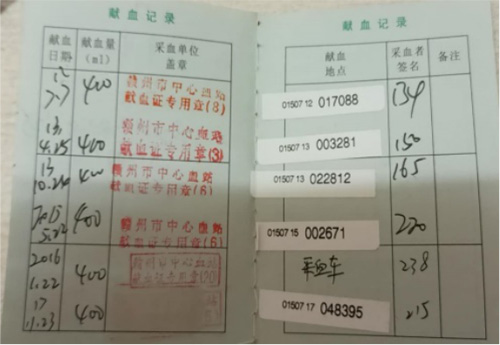 献血记录
献血日期 献血量(ml) 采血单位盖章
12 7.7 400 赣州市中心血站 献血证专用章(8)
13. 4.25 400 赣州市中心血站 献血证专用章(3)
13 10.24 400 赣州市中心血站 献血证专用章(6)
2015 5.22 400 赣州市中心血站 献血证专用章(6)
2016 1.22 400 赣州市中心血站
17 11.23 400
献血记录
献血地点 采血者签名 备注
01507 12 017088 134
01507 13 003281 150
01507 13 022812 165
01507 15 002671 220
采血车 238
01507 17 048395 215